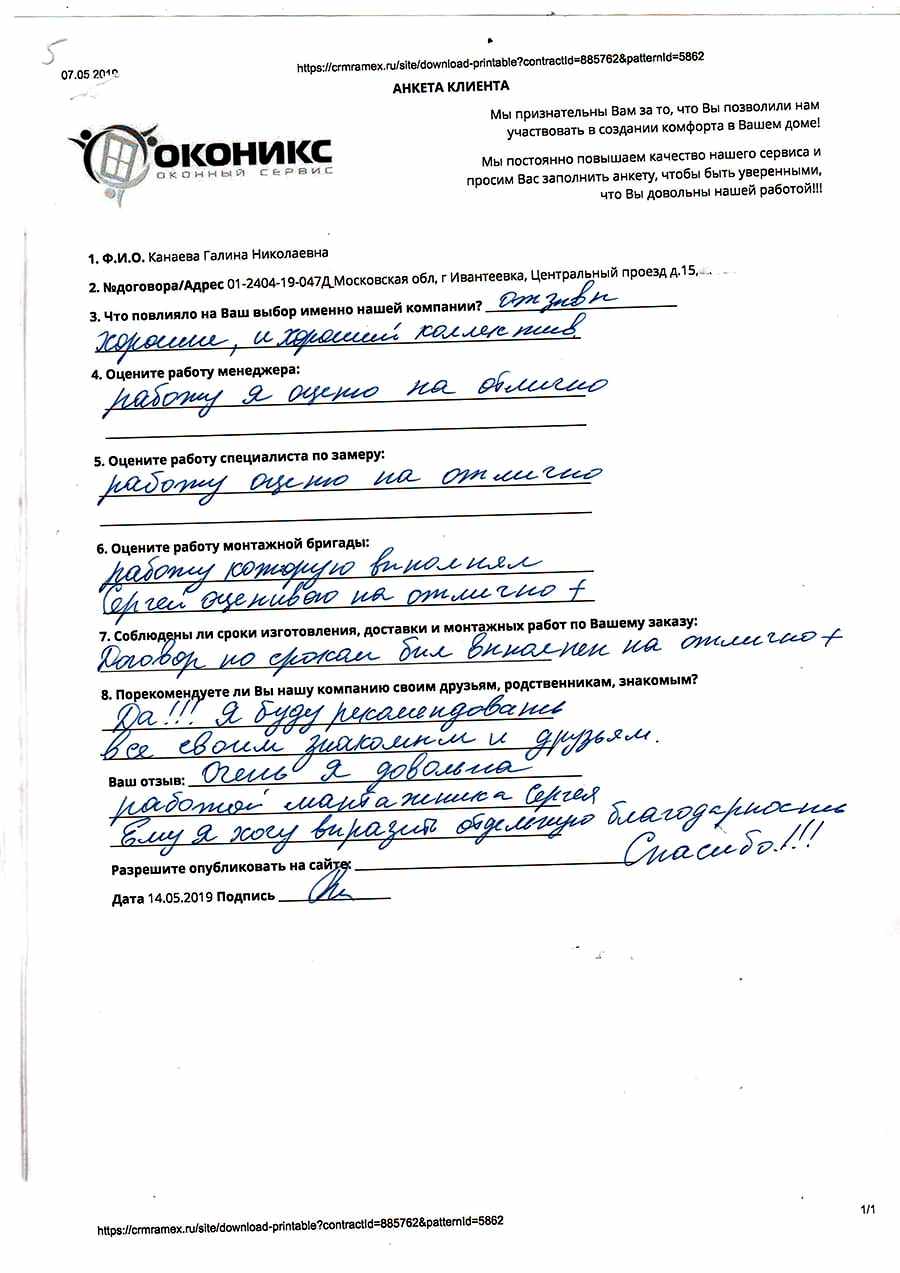 5
07.05 2019
https://crmramex.ru/site/download-printable?contractId=885762&patternId=5862
АНКЕТА КЛИЕНТА
Мы признательны Вам за то, что Вы позволили нам
участвовать в создании комфорта в Вашем доме!
ОКОНИКС
ОКОННЫЙ СЕРВИС
Мы постоянно повышаем качество нашего сервиса и
просим Вас заполнить анкету, чтобы быть уверенными,
что Вы довольны нашей работой!!!
1. Ф.И.О. Канаева Галина Николаевна
2. №договора/Адрес 01-2404-19-047Д,Московская обл, г Ивантеевка, Центральный проезд д.15,
3. Что повлияло на Ваш выбор именно нашей компании? отзывы
хорошие, и хороший коллектив
4. Оцените работу менеджера:
работу я оценю на отлично
5. Оцените работу специалиста по замеру:
работу оценю на отлично
6. Оцените работу монтажной бригады:
работу которую выполнял
Сергей оцениваю на отлично +
7. Соблюдены ли сроки изготовления, доставки и монтажных работ по Вашему заказу:
Договор по срокам был выполнен на отлично +
8. Порекомендуете ли Вы нашу компанию своим друзьям, родственникам, знакомым?
Да!!! Я буду рекомендовать
все своим знакомым и друзьям.
Ваш отзыв: Очень я довольна
работой мантажника Сергея
Ему я хочу выразить отдельную благодарность
Спасибо!!!
Разрешите опубликовать на сайте:
Дата 14.05.2019 Подпись
https://crmramex.ru/site/download-printable?contractId=885762&patternId=5862
1/1